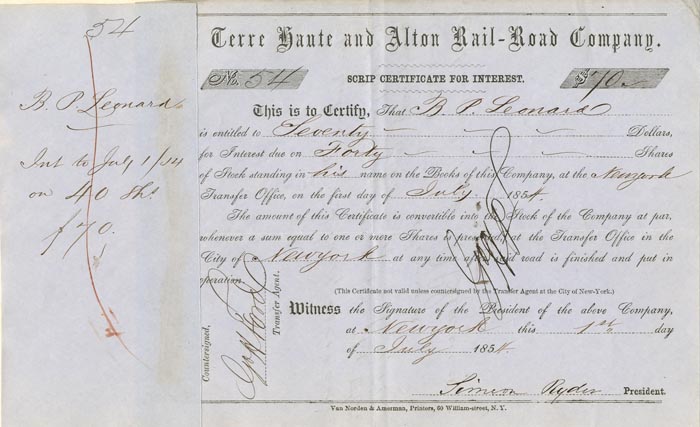 54
B. P. Leonard
Int to July 1/54
on 40 Shs
$70.
Terre Haute and Alton Rail-Road Company.
No. 54 SCRIP CERTIFICATE FOR INTEREST. $70
This is to Certify, That B. P. Leonard
is entitled to Seventy Dollars,
for Interest due on Forty Shares
of Stock standing in his name on the Books of this Company, at the Newyork
Transfer Office, on the first day of July 1854.
The amount of this Certificate is convertible into Stock of the Company at par,
whenever a sum equal to one or more Shares is presented, at the Transfer Office in the
City of Newyork at any time after said road is finished and put in
operation.
(This Certificate not valid unless countersigned by the Transfer Agent at the City of New-York.)
Witness the Signature of the President of the above Company,
at Newyork this 1st day
of July 1854.
Simeon Ryder President.
Countersigned,
Transfer Agent.
Van Norden & Amerman, Printers, 60 William-street, N. Y.